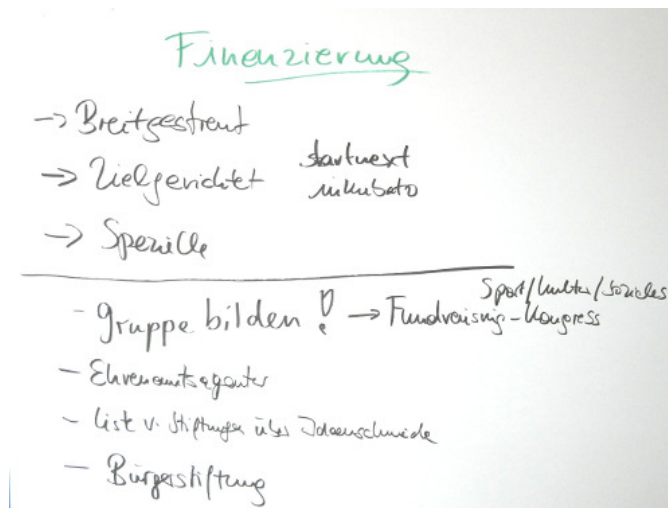 Finanzierung
-> Breitgestreut
-> Zielgerichtet startnext
inkubato
-> Spezielle
Sport/Kultur/Soziales
- Gruppe bilden! -> Fundraising-Kongress
- Ehrenamtsagentur
- Liste v. Stiftungen über Ideenschmiede
- Bürgerstiftung